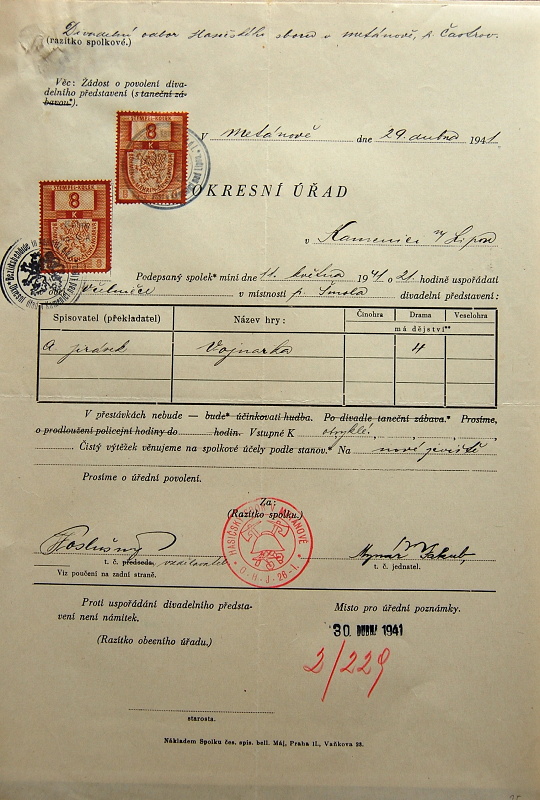 Divadelní odbor Hasičského sboru v Metánově, p. Častrov.
(razítko spolkové.)
Věc: Žádost o povolení diva-
delního představení (s taneční zá-
bavou*).
STEMPEL-KOLEK
8
K
STEMPEL-KOLEK
8
K
V Metánově dne 29. dubna 1941.
OKRESNÍ ÚŘAD
v Kamenici n/Lipou
Podepsaný spolek* míní dne 11. května 1941 o 21. hodině uspořádati
Včelničce v místnosti p. Šmola divadelní představení:
Spisovatel (překladatel) Název hry: Činohra Drama Veselohra
má dějství**
A Jirásek Vojnarka 4
V přestávkách nebude — bude* účinkovati hudba. Po divadle taneční zábava.* Prosíme,
o prodloužení policejní hodiny do hodin. Vstupné K obvyklé.
Čistý výtěžek věnujeme na spolkové účely podle stanov.* Na nové jeviště
Prosíme o úřední povolení.
Za:
(Razítko spolku.)
HASIČSKÝ SBOR V METÁNOVĚ
O. H. J. 26-I.
Poslušný
t. č. předseda. vzdělavatel
t. č. jednatel.
Viz poučení na zadní straně.
Proti uspořádání divadelního předsta-
vení není námitek.
(Razítko obecního úřadu.)
Místo pro úřední poznámky.
30 1941
2/229
starosta.
Nákladem Spolku čes. spis. bell. Máj, Praha II., Vaňkova 23.